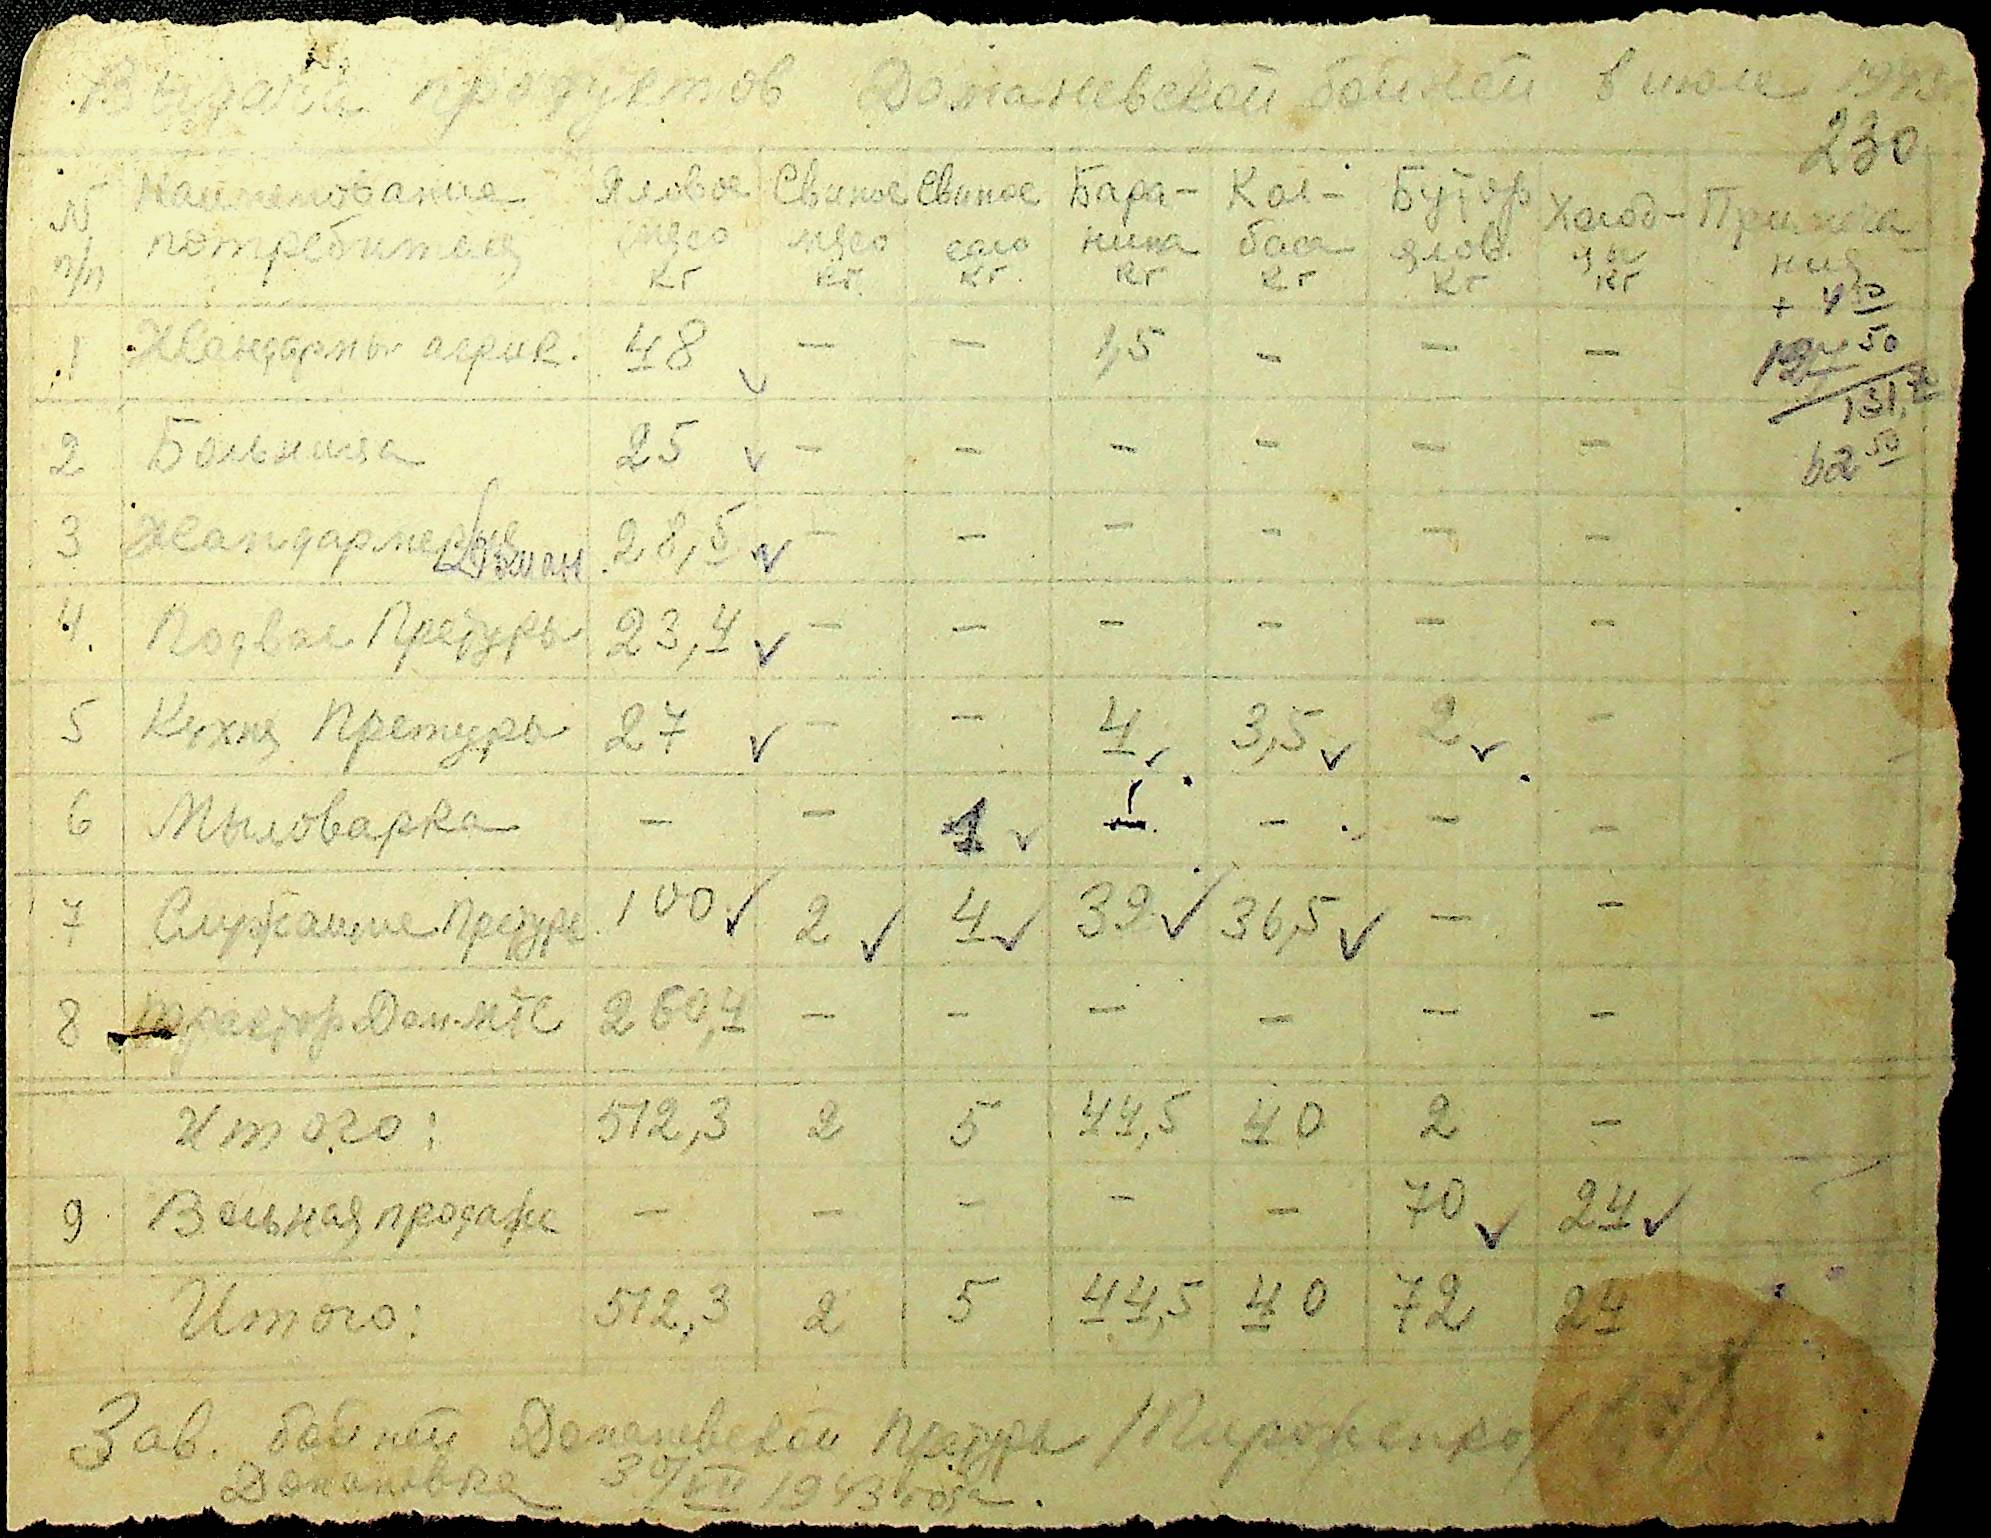 Выдача продуктов Доманевской бойней в июле 1943 г.
230
N п/п Наименование потребителя Яловое мясо кг Свиное мясо кг. Свиное сало кг. Бара-нина кг Кол-баса кг Бутор ялов. кг Холод-цы кг Примеча-ния
1 Жандармы агрик. 48 – – 1,5 – – –
2 Больница 25 – – – – – –
62 50
3 Жандармерия 28,5 – – – – – –
4. Подвал Претуры 23,4 – – – – – –
5 Кухня Претуры 27 – – 4 3,5 2 –
6 Мыловарка – – 1 – – –
7 Служащие Претуры 100 2 4 39 36,5 – –
8 Трактор Дом МТС 260,4 – – – – – –
Итого: 512,3 2 5 44,5 40 2 –
9 Вольная продажа – – – – – 70 24
Итого: 512,3 2 5 44,5 40 72 24
Зав. бойней Доманевской Претуры /Пироженко/
Домановка 30/VII 1943 года.